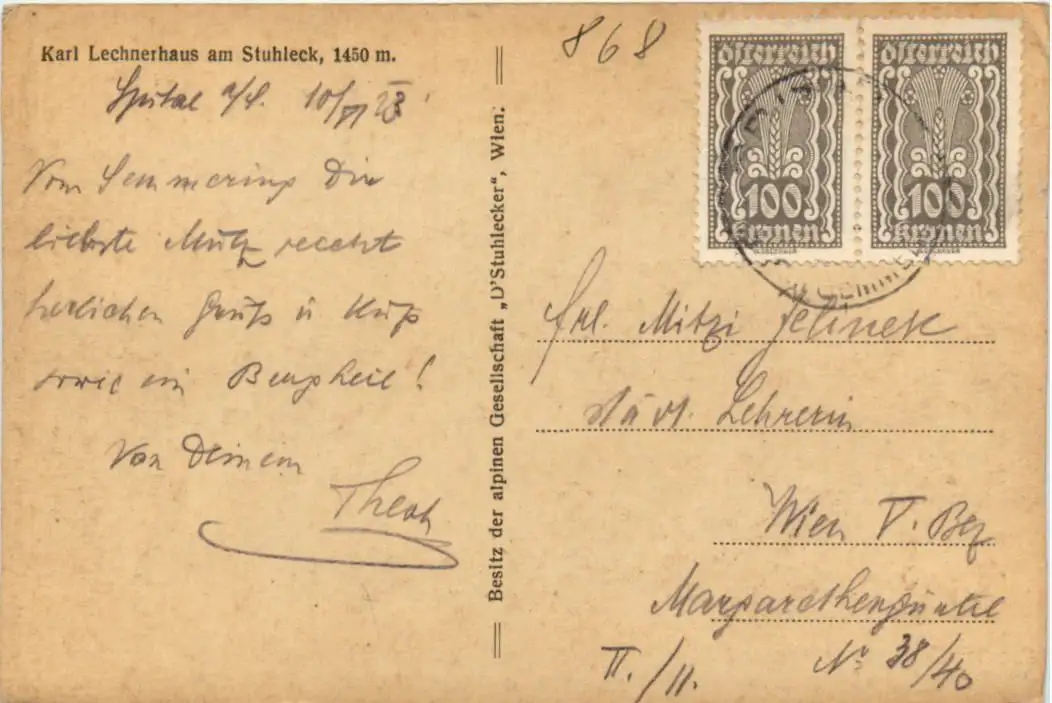 Karl Lechnerhaus am Stuhleck, 1450 m.
Spital a/S. 10/VI 23
Vom Semmering Dir
liebste Mitz recht
herzlichen Gruß u Kuß
sowie ein Bergheil!
Von Deinem
Besitz der alpinen Gesellschaft „D'Stuhlecker“, Wien.
868
Österreich
100
Kronen
Österreich
100
Kronen
Frl. Mitzi Jelinek
städt. Lehrerin
Wien V. Bez
Margarethengürtel
No 38/40
II./11.